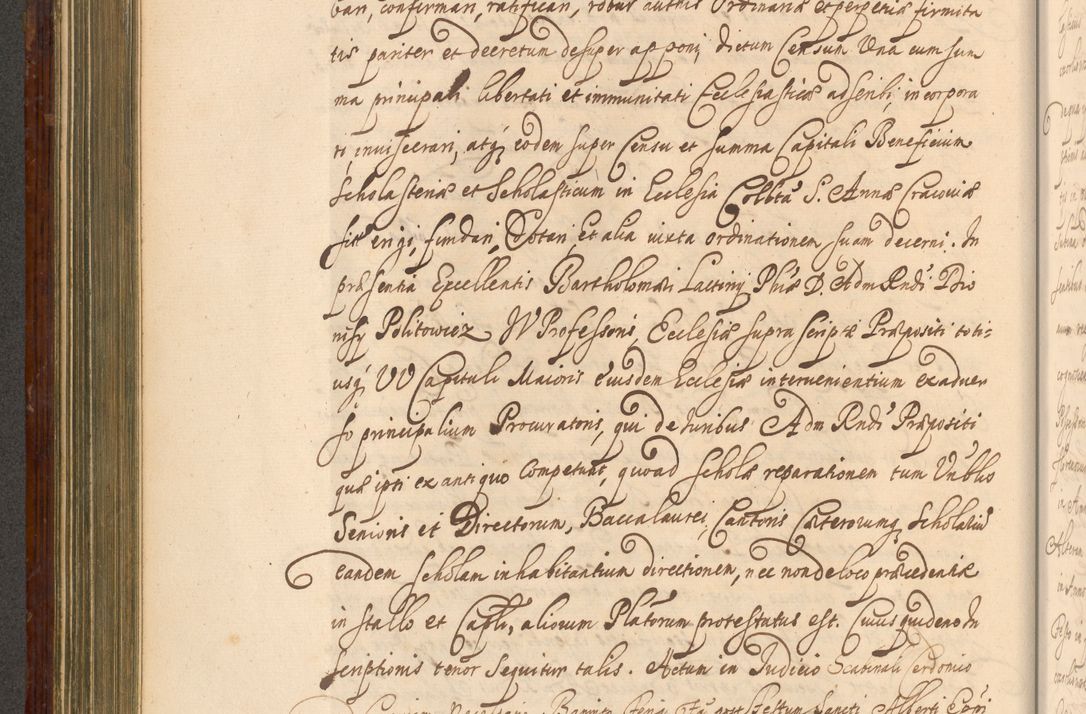 bari, confirmari, ratificari, robur authis Ordinariæ et perpetuæ firmita
tis pariter et decretum desuper apponi, dictum Censum Una cum sum
ma principali libertati et immunitati Ecclesiasticæ adscribi, incorpora
ri, inuiscerari, atq; eodem super Censu et summa Capitali Beneficium
Scholasteriæ et Scholasticum in Ecclesia Collta S. Annæ Cracouiæ
sitæ erigi, fundari, Dotari, et alia iuxta ordinationem suam decerni. In
præsentia Excellentis Bartholomæi Lactinij Phiæ D. Adm Rndi Dio
nisij Politowicz JV Professoris, Ecclesiæ supra scriptæ Præpositi toti=
usq; VV Capituli Maioris eiusdem Ecclesiæ interuenientium ex aduer
so principalium Procuratoris, qui de Iuribus Adm Rndi Præpositi
quæ ipsi ex antiquo competunt, quoad scholæ reparationem tum
Senioris et Directorum, Baccalaurei, Cantoris Cæterorumq; Scholariu
eandem scholam inhabitantium directionem, nec non de loco præcedentiæ
in stallo et Caplo, aliorum Prælatorum protestatus est. Cuius quidem In
scriptionis tenor sequitur talis. Actum in Iudicio Scabinali
post Festum Sancti Alberti Epi